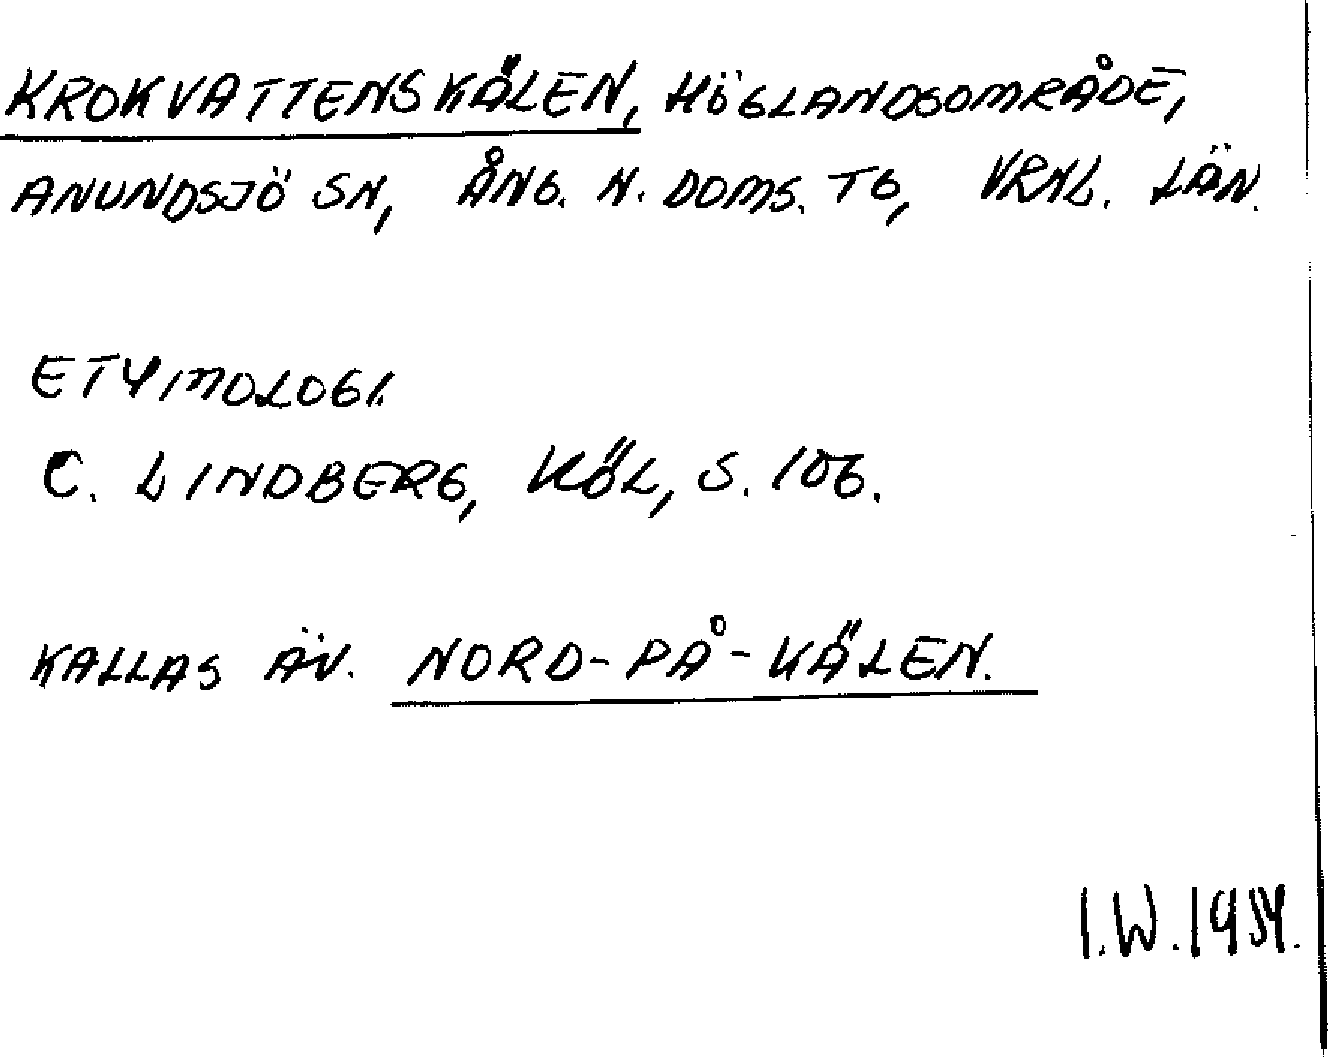 KROKVATTENSKÄLEN, HÖGLANDSOMRÅDE,
ANUNDSJÖ SN, ÅNG. N. DOMS. TG, VRNL. LÄN.
ETYMOLOGI.
C. LINDBERG, KÖL, S. 106.
KALLAS ÄV. NORD-PÅ-KÄLEN.
I.W. 1954.